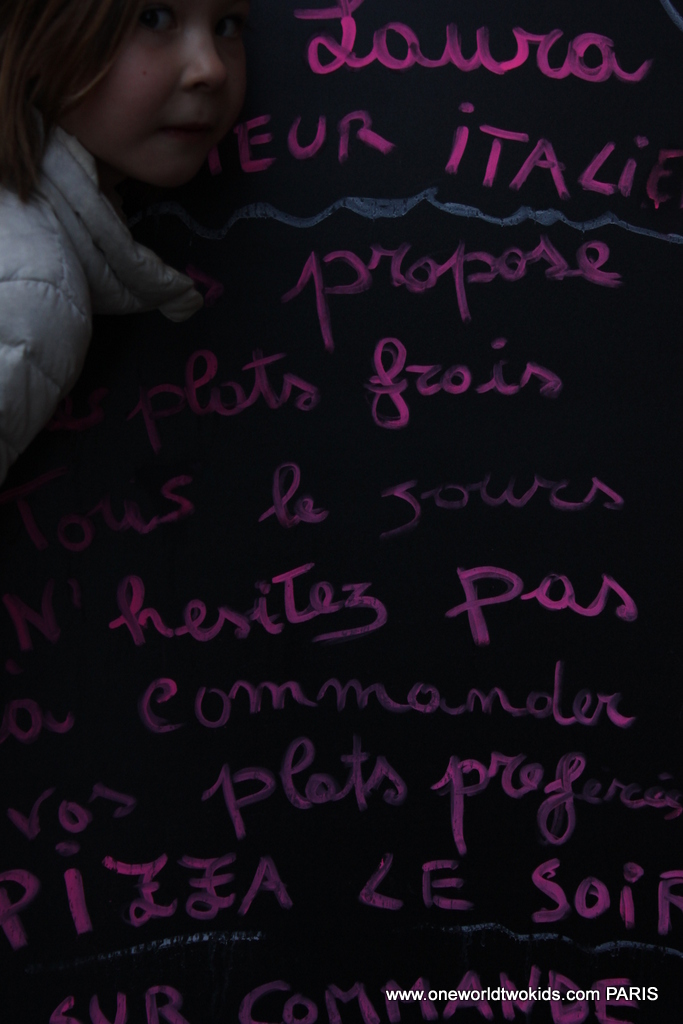 Laura
TEUR ITALIE
s propose
plats frais
Tous le jours
N'hesitez pas
à commander
vos plats preferés
PIZZA LE SOIR
SUR COMMANDE
www.oneworldtwokids.com PARIS